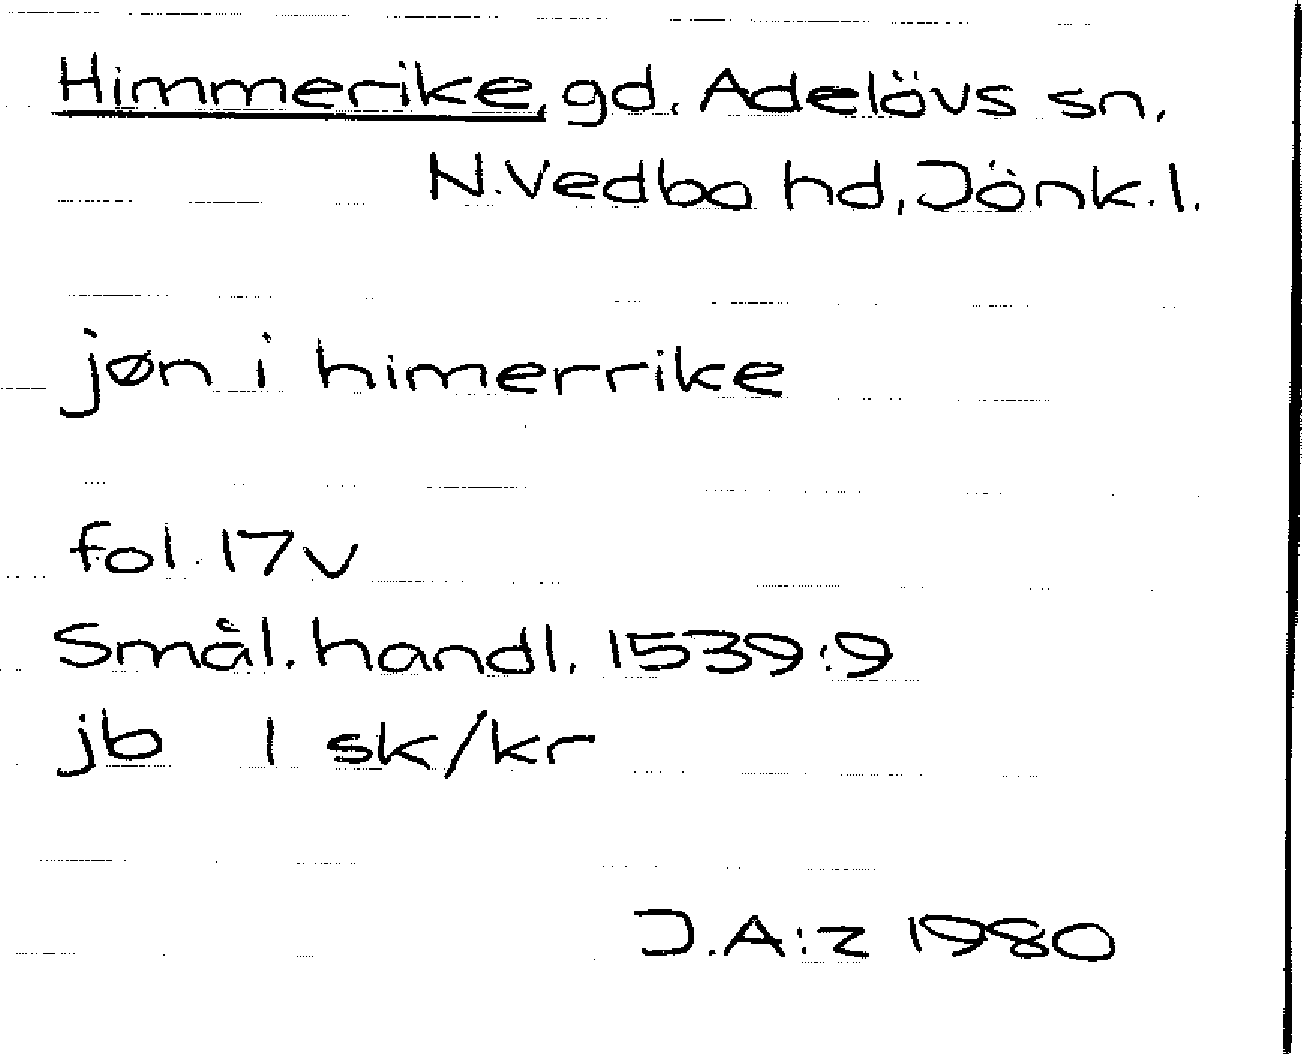 Himmerike, gd. Adelövs sn,
N.Vedbo hd, Jönk.l.
jøn i himerrike
fol. 17v
Smål. handl. 1539:9
jb 1 sk/kr
J.A:z 1980